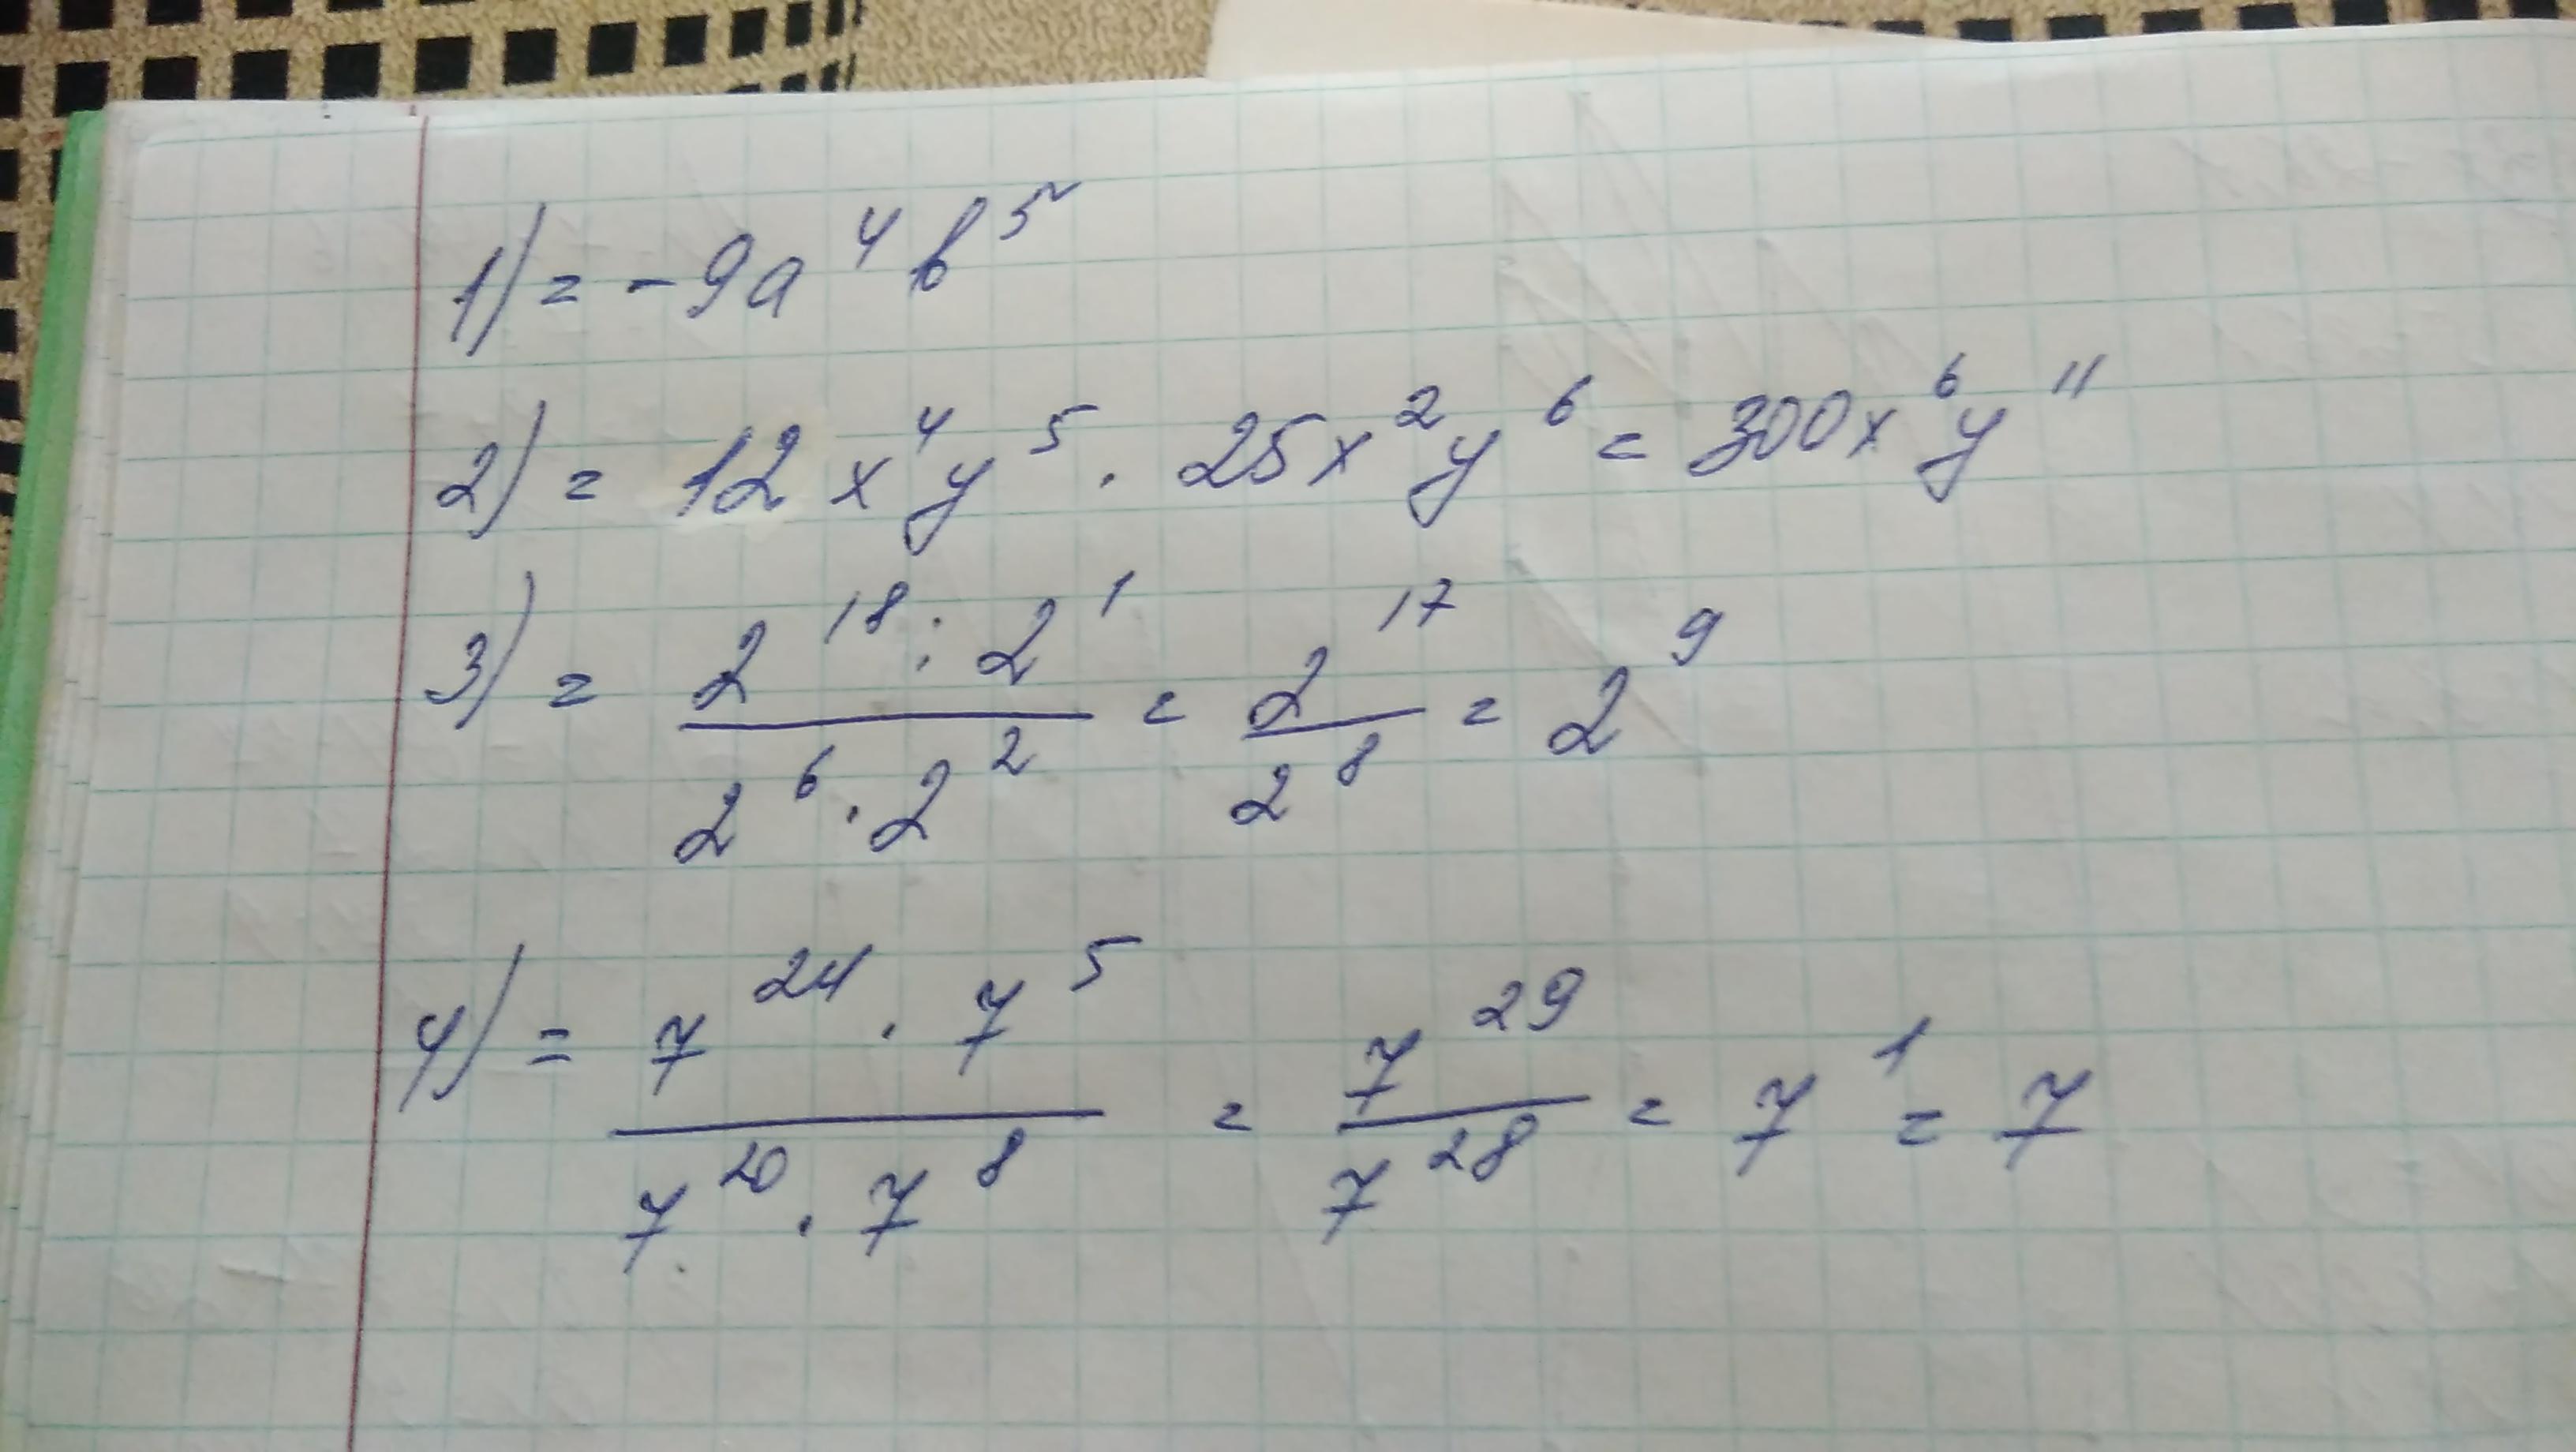 1) = -9a⁴b⁵
2) = 12x⁴y⁵ · 25x²y⁶ = 300x⁶y¹¹
3) = (2¹⁸ : 2¹)/(2⁶ · 2²) = 2¹⁷/2⁸ = 2⁹
4) = (7²⁴ · 7⁵)/(7²⁰ · 7⁸) = 7²⁹/7²⁸ = 7¹ = 7